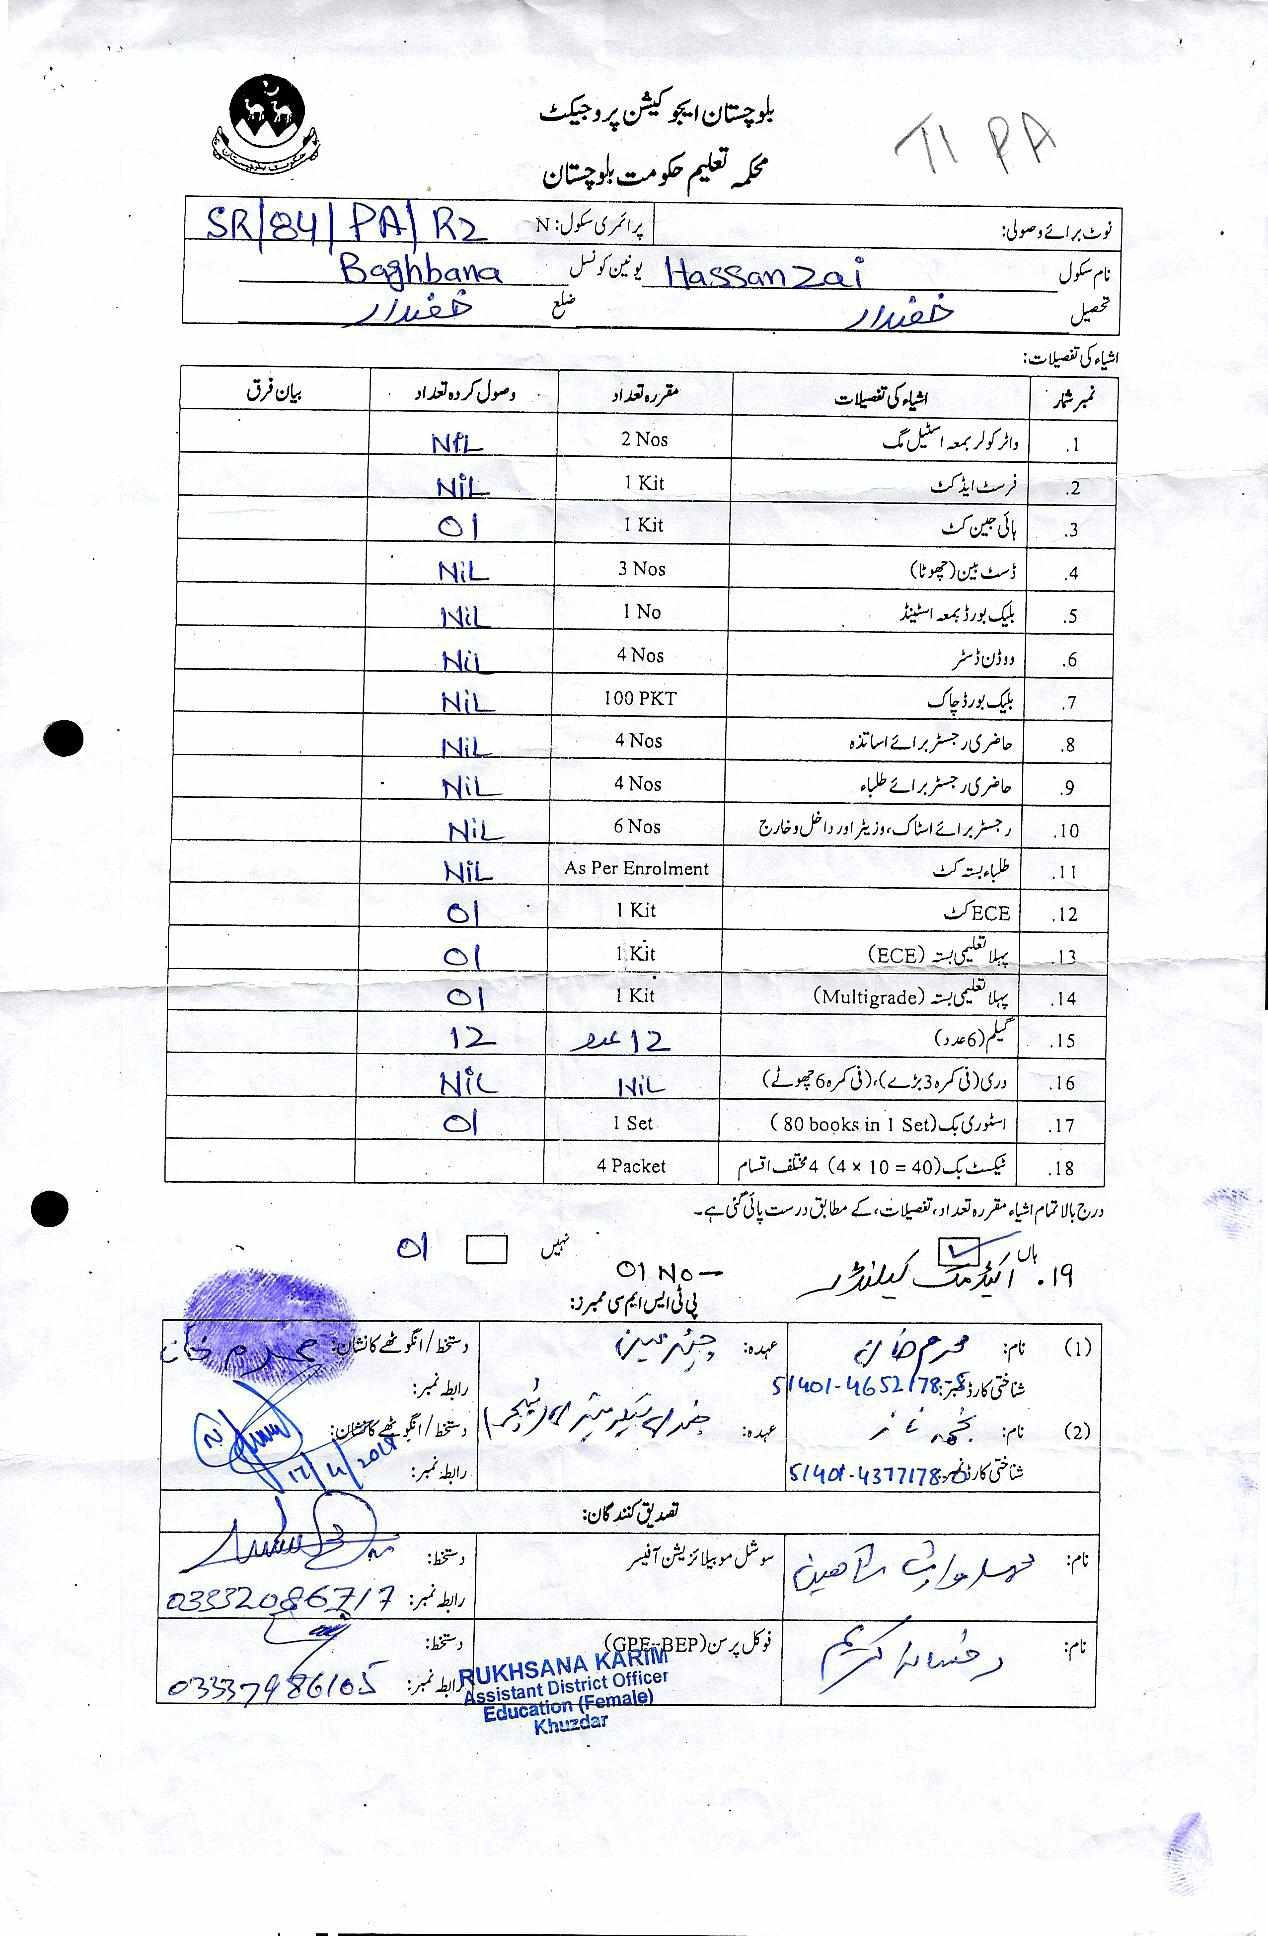 بلوچستان ایجوکیشن پروجیکٹ
TI PA
محکمہ تعلیم حکومت بلوچستان
نوٹ برائے وصولی: پرائمری سکول: N SR/84/PA/R2
نام سکول Hassanzai یونین کونسل Baghbana
تحصیل خضدار ضلع خضدار
اشیاء کی تفصیلات:
نمبر شمار اشیاء کی تفصیلات مقررہ تعداد وصول کردہ تعداد بیان فرق
1. واٹر کولر بمعہ اسٹیل مگ 2 Nos NiL
2. فرسٹ ایڈ کٹ 1 Kit NiL
3. ہائی جین کٹ 1 Kit 01
4. ڈسٹ بین (چھوٹا) 3 Nos NiL
5. بلیک بورڈ بمعہ اسٹینڈ 1 No NiL
6. ووڈن ڈسٹر 4 Nos NiL
7. بلیک بورڈ چاک 100 PKT NiL
8. حاضری رجسٹر برائے اساتذہ 4 Nos NiL
9. حاضری رجسٹر برائے طلباء 4 Nos NiL
10. رجسٹر برائے اسٹاک، وزیٹر اور داخل و خارج 6 Nos NiL
11. طلباء بستہ کٹ As Per Enrolment NiL
12. ECE کٹ 1 Kit 01
13. پہلا تعلیمی بستہ (ECE) 1 Kit 01
14. پہلا تعلیمی بستہ (Multigrade) 1 Kit 01
15. گیلم (6 عدد) 12 عدد 12
16. دری (فی کمرہ 3 بڑے)، (فی کمرہ 6 چھوٹے) NiL NiL
17. اسٹوری بک (80 books in 1 Set) 1 Set 01
18. ٹیکسٹ بک (4 × 10 = 40) 4 مختلف اقسام 4 Packet
درج بالا تمام اشیاء مقررہ تعداد، تفصیلات، کے مطابق درست پائی گئی ہے۔
ہاں نہیں 01
۱۹. اکیڈمک کیلنڈر 01 No
پی ٹی ایس ایم سی ممبرز:
(1) نام: محرم خان عہدہ: چیئرمین دستخط/انگوٹھے کا نشان: محرم خان
شناختی کارڈ نمبر: 51401-4652178-5 رابطہ نمبر:
(2) نام: نجمہ ناز عہدہ: دستخط/انگوٹھے کا نشان:
شناختی کارڈ نمبر: 51401-4377178-0 رابطہ نمبر:
تصدیق کنندگان:
نام: شاھین سوشل موبیلائزیشن آفیسر دستخط:
رابطہ نمبر: 03332086717
نام: رخسانہ کریم فوکل پرسن (GPE-BEP) دستخط:
رابطہ نمبر: 03337986105
RUKHSANA KARIM
Assistant District Officer
Education (Female)
Khuzdar